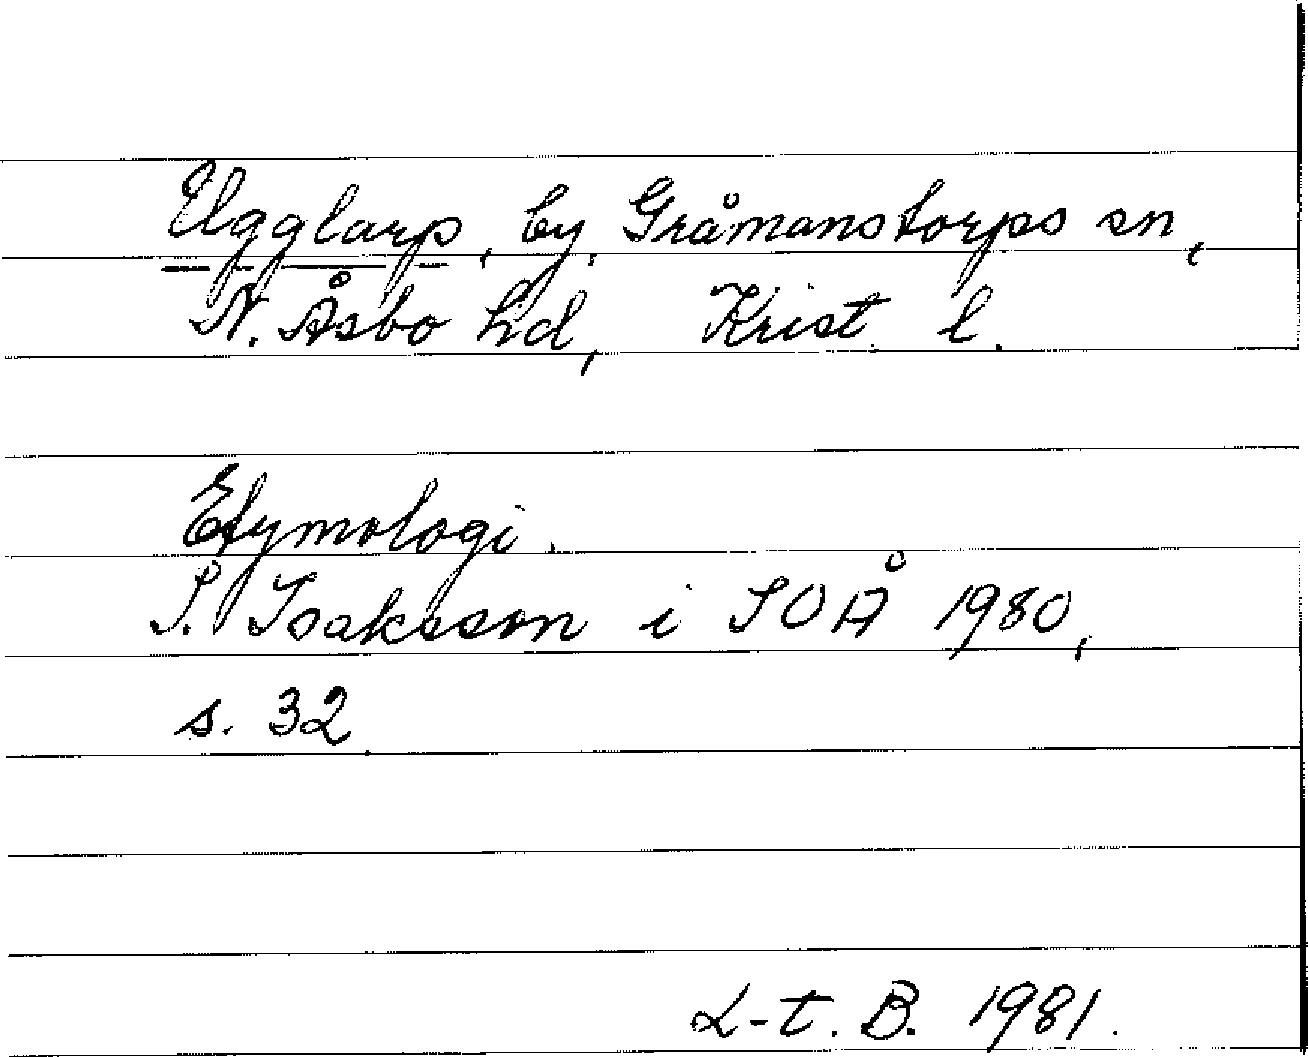 Ugglarp, by, Gråmanstorps sn,
N. Åsbo hd, Krist. l.
Etymologi.
S. Isaksson i SOÅ 1980,
s. 32.
L-t. B. 1981.